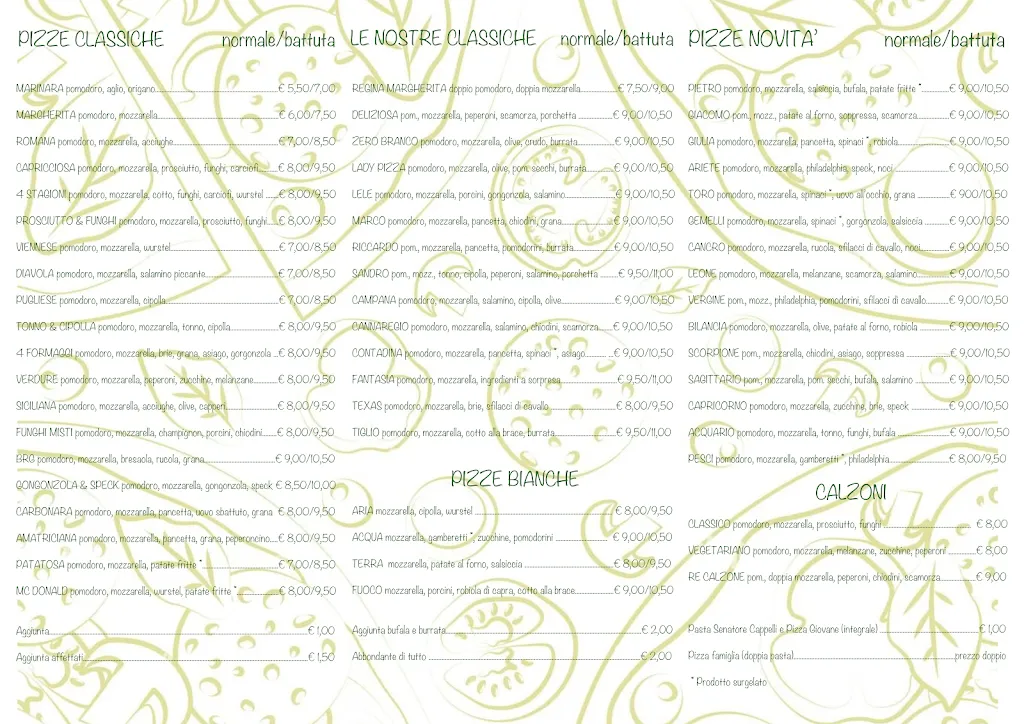 PIZZE CLASSICHE normale/battuta
MARINARA pomodoro, aglio, origano € 5,50/7,00
MARGHERITA pomodoro, mozzarella € 6,00/7,50
ROMANA pomodoro, mozzarella, acciughe € 7,00/8,50
CAPRICCIOSA pomodoro, mozzarella, prosciutto, funghi, carciofi € 8,00/9,50
4 STAGIONI pomodoro, mozzarella, cotto, funghi, carciofi, wurstel € 8,00/9,50
PROSCIUTTO & FUNGHI pomodoro, mozzarella, prosciutto, funghi € 8,00/9,50
VIENNESE pomodoro, mozzarella, wurstel € 7,00/8,50
DIAVOLA pomodoro, mozzarella, salamino piccante € 7,00/8,50
PUGLIESE pomodoro, mozzarella, cipolla € 7,00/8,50
TONNO & CIPOLLA pomodoro, mozzarella, tonno, cipolla € 8,00/9,50
4 FORMAGGI pomodoro, mozzarella, brie, grana, asiago, gorgonzola € 8,00/9,50
VERDURE pomodoro, mozzarella, peperoni, zucchine, melanzane € 8,00/9,50
SICILIANA pomodoro, mozzarella, acciughe, olive, capperi € 8,00/9,50
FUNGHI MISTI pomodoro, mozzarella, champignon, porcini, chiodini € 8,00/9,50
BRG pomodoro, mozzarella, bresaola, rucola, grana € 9,00/10,50
GONGONZOLA & SPECK pomodoro, mozzarella, gongonzola, speck € 8,50/10,00
CARBONARA pomodoro, mozzarella, pancetta, uovo sbattuto, grana € 8,00/9,50
AMATRICIANA pomodoro, mozzarella, pancetta, grana, peperoncino € 8,00/9,50
PATATOSA pomodoro, mozzarella, patate fritte * € 7,00/8,50
MC DONALD pomodoro, mozzarella, wurstel, patate fritte * € 8,00/9,50
Aggiunta € 1,00
Aggiunta affettati € 1,50
LE NOSTRE CLASSICHE normale/battuta
REGINA MARGHERITA doppio pomodoro, doppia mozzarella € 7,50/9,00
DELIZIOSA pom., mozzarella, peperoni, scamorza, porchetta € 9,00/10,50
ZERO BRANCO pomodoro, mozzarella, olive, crudo, burrata € 9,00/10,50
LADY PIZZA pomodoro, mozzarella, olive, pom. secchi, burrata € 9,00/10,50
LELE pomodoro, mozzarella, porcini, gongonzola, salamino € 9,00/10,50
MARCO pomodoro, mozzarella, pancetta, chiodini, grana € 9,00/10,50
RICCARDO pom., mozzarella, pancetta, pomodorini, burrata € 9,00/10,50
SANDRO pom., mozz., tonno, cipolla, peperoni, salamino, porchetta € 9,50/11,00
CAMPANA pomodoro, mozzarella, salamino, cipolla, olive € 9,00/10,50
CANNAREGIO pomodoro, mozzarella, salamino, chiodini, scamorza € 9,00/10,50
CONTADINA pomodoro, mozzarella, pancetta, spinaci *, asiago € 9,00/10,50
FANTASIA pomodoro, mozzarella, ingredienti a sorpresa € 9,50/11,00
TEXAS pomodoro, mozzarella, brie, sfilacci di cavallo € 8,00/9,50
TIGLIO pomodoro, mozzarella, cotto alla brace, burrata € 9,50/11,00
PIZZE BIANCHE
ARIA mozzarella, cipolla, wurstel € 8,00/9,50
ACQUA mozzarella, gamberetti *, zucchine, pomodorini € 9,00/10,50
TERRA mozzarella, patate al forno, salsiccia € 8,00/9,50
FUOCO mozzarella, porcini, robiola di capra, cotto alla brace € 9,00/10,50
Aggiunta bufala e burrata € 2,00
Abbondante di tutto € 2,00
PIZZE NOVITA' normale/battuta
PIETRO pomodoro, mozzarella, salsiccia, bufala, patate fritte * € 9,00/10,50
GIACOMO pom., mozz., patate al forno, soppressa, scamorza € 9,00/10,50
GIULIA pomodoro, mozzarella, pancetta, spinaci *, robiola € 9,00/10,50
ARIETE pomodoro, mozzarella, philadelphia, speck, noci € 9,00/10,50
TORO pomodoro, mozzarella, spinaci *, uovo all'occhio, grana € 900/10,50
GEMELLI pomodoro, mozzarella, spinaci *, gorgonzola, salsiccia € 9,00/10,50
CANCRO pomodoro, mozzarella, rucola, sfilacci di cavallo, noci € 9,00/10,50
LEONE pomodoro, mozzarella, melanzane, scamorza, salamino € 9,00/10,50
VERGINE pom., mozz., philadelphia, pomodorini, sfilacci di cavallo € 9,00/10,50
BILANCIA pomodoro, mozzarella, olive, patate al forno, robiola € 9,00/10,50
SCORPIONE pom., mozzarella, chiodini, asiago, soppressa € 9,00/10,50
SAGITTARIO pom., mozzarella, pom. secchi, bufala, salamino € 9,00/10,50
CAPRICORNO pomodoro, mozzarella, zucchine, brie, speck € 9,00/10,50
ACQUARIO pomodoro, mozzarella, tonno, funghi, bufala € 9,00/10,50
PESCI pomodoro, mozzarella, gamberetti *, philadelphia € 8,00/9,50
CALZONI
CLASSICO pomodoro, mozzarella, prosciutto, funghi € 8,00
VEGETARIANO pomodoro, mozzarella, melanzane, zucchine, peperoni € 8,00
RE CALZONE pom., doppia mozzarella, peperoni, chiodini, scamorza € 9,00
Pasta Senatore Cappelli e Pizza Giovane (integrale) € 1,00
Pizza famiglia (doppia pasta) prezzo doppio
* Prodotto surgelato